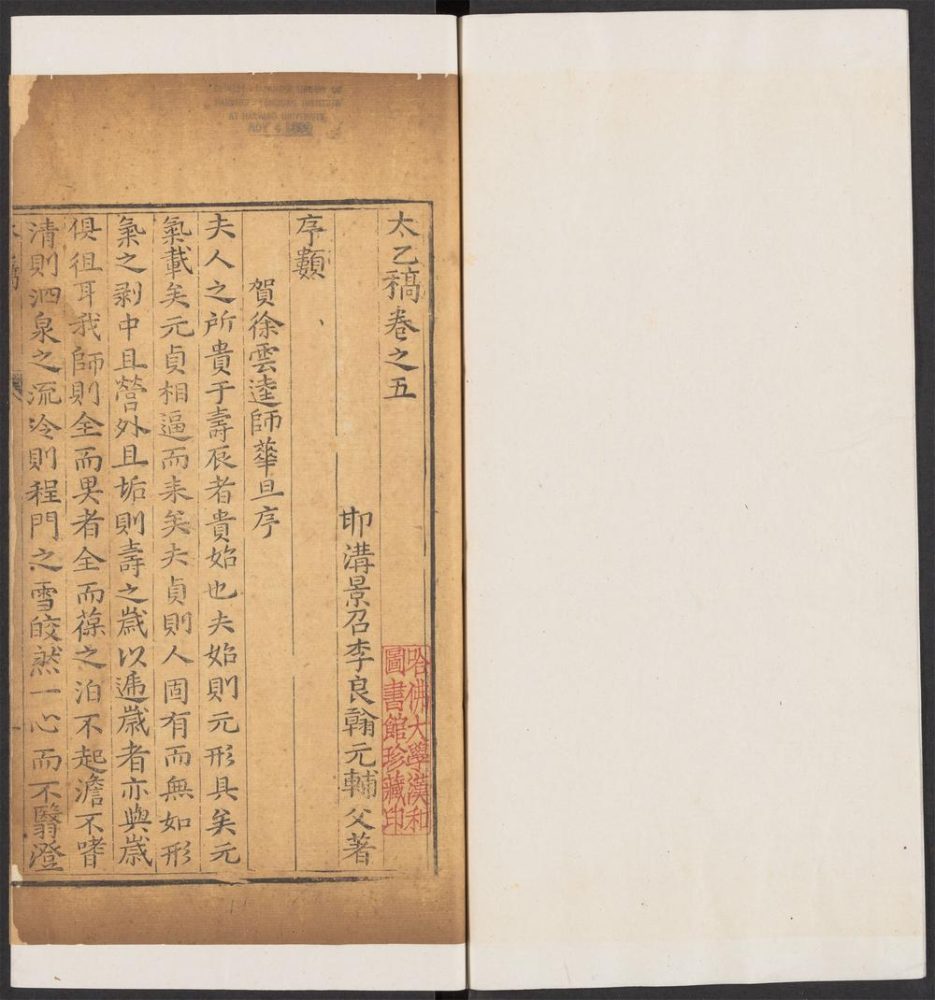 太乙稿卷之五
邗溝景召李良翰元輔父著
序類
賀徐雲逵師華旦序
夫人之所貴于壽辰者貴始也夫始則元形具矣元
氣載矣元貞相逼而来矣夫貞則人固有而無如形
氣之剥中且營外且垢則壽之歲以遞歲者亦與歲
俱徂耳我師則全而畀者全而葆之泊不起澹不嗜
清則泗泉之流泠則程門之雪皎然一心而不翳澄
哈佛大學漢和
圖書館珍藏印